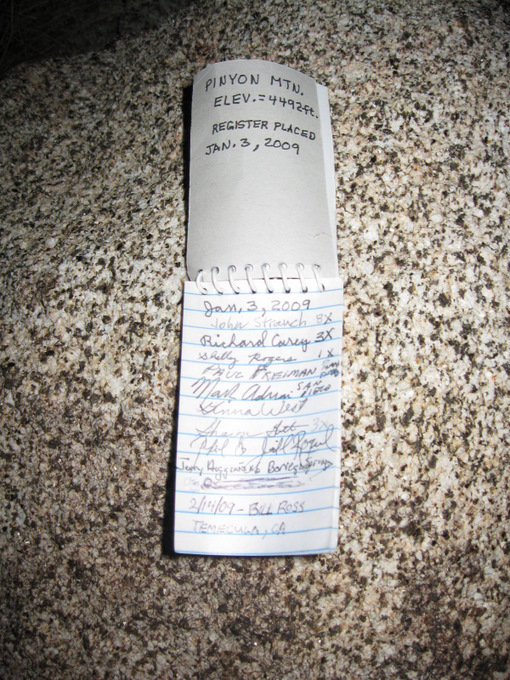 PINYON MTN.
ELEV.=4492ft.
REGISTER PLACED
JAN. 3, 2009
Jan, 3, 2009
John Strauch 8X
Richard Carey 3X
Shelly Rogers 1X
PAUL FREIMAN
Mark Adrian SAN DIEGO
Anna West
3X
2/14/09 - BILL ROSS
TEMECULA, CA